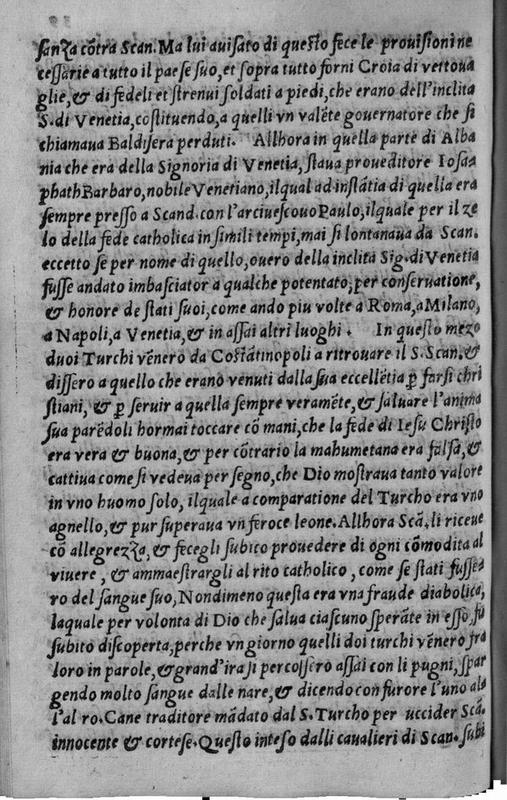 sanza cõtra Scan. Ma lui auisato di questo fece le prouisioni ne
cessarie a tutto il paese suo, et sopra tutto forni Croia di vettoua
glie, & di fedeli et strenui soldati a piedi, che erano dell'inclita
S. di Venetia, costituendo, a quelli vn valẽte gouernatore che si
chiamaua Baldisera perduti. Allhora in quella parte di Alba
nia che era della Signoria di Venetia, staua proueditore Iosa-
phath Barbaro, nobile Venetiano, ilqual ad instãtia di quella era
sempre presso a Scand. con l'arciuescouo Paulo, ilquale per il ze
lo della fede catholica in simili tempi, mai si lontanaua da Scan.
eccetto se per nome di quello, ouero della inclita Sig. di Venetia
fusse andato imbasciator a qualche potentato, per conseruatione,
& honore de stati suoi, come ando piu volte a Roma, a Milano,
a Napoli, a Venetia, & in assai altri luoghi. In questo mezo
duoi Turchi vẽnero da Costãtinopoli a ritrouare il S. Scan. &
dissero a quello che erano venuti dalla sua eccellẽtia ꝑ farsi chri
stiani, & ꝑ seruir a quella sempre veramẽte, & saluare l'anima
sua parẽdoli hormai toccare cõ mani, che la fede di Iesu Christo
era vera & buona, & per cõtrario la mahumetana era falsa, &
cattiua come si vedeua per segno, che Dio mostraua tanto valore
in vno huomo solo, ilquale a comparatione del Turcho era vno
agnello, & pur superaua vn feroce leone. Allhora Scã. li riceue
cõ allegrezza, & fecegli subito prouedere di ogni cõmodita al
viuere, & ammaestrargli al rito catholico, come se stati fusse-
ro del sangue suo, Nondimeno questa era vna fraude diabolica,
laquale per volonta di Dio che salua ciascuno sperãte in esso, fu
subito discoperta, perche vn giorno quelli doi turchi vẽnero fra
loro in parole, & grand'ira si percossero assai con li pugni, spar
gendo molto sangue dalle nare, & dicendo con furore l'uno al-
l'al ro. Cane traditore mãdato dal S. Turcho per uccider Scã.
innocente & cortese. Questo inteso dalli caualieri di Scan. subi